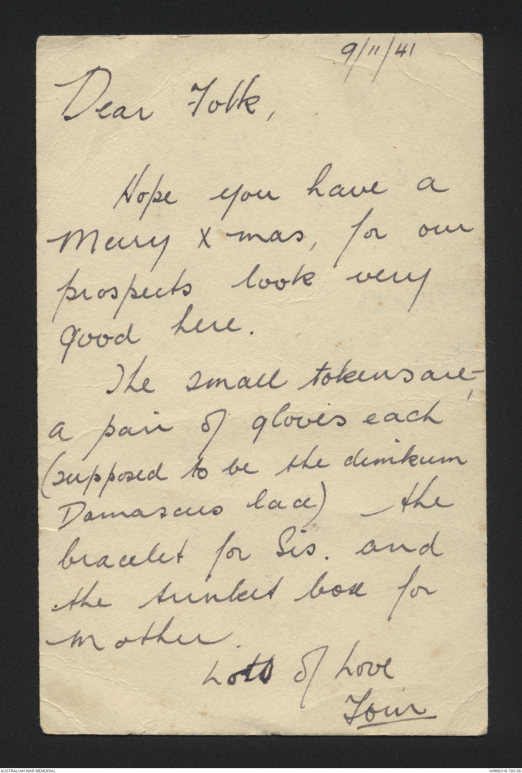 9/11/41
Dear Folk,
Hope you have a
Merry Xmas, for our
prospects look very
good here.
The small tokens are,-
a pair of gloves each
(supposed to be the dinikum
Damascus lace) the
bracelet for Sis. and
the trinket box for
Mother.
Lots of Love
AUSTRALIAN WAR MEMORIAL